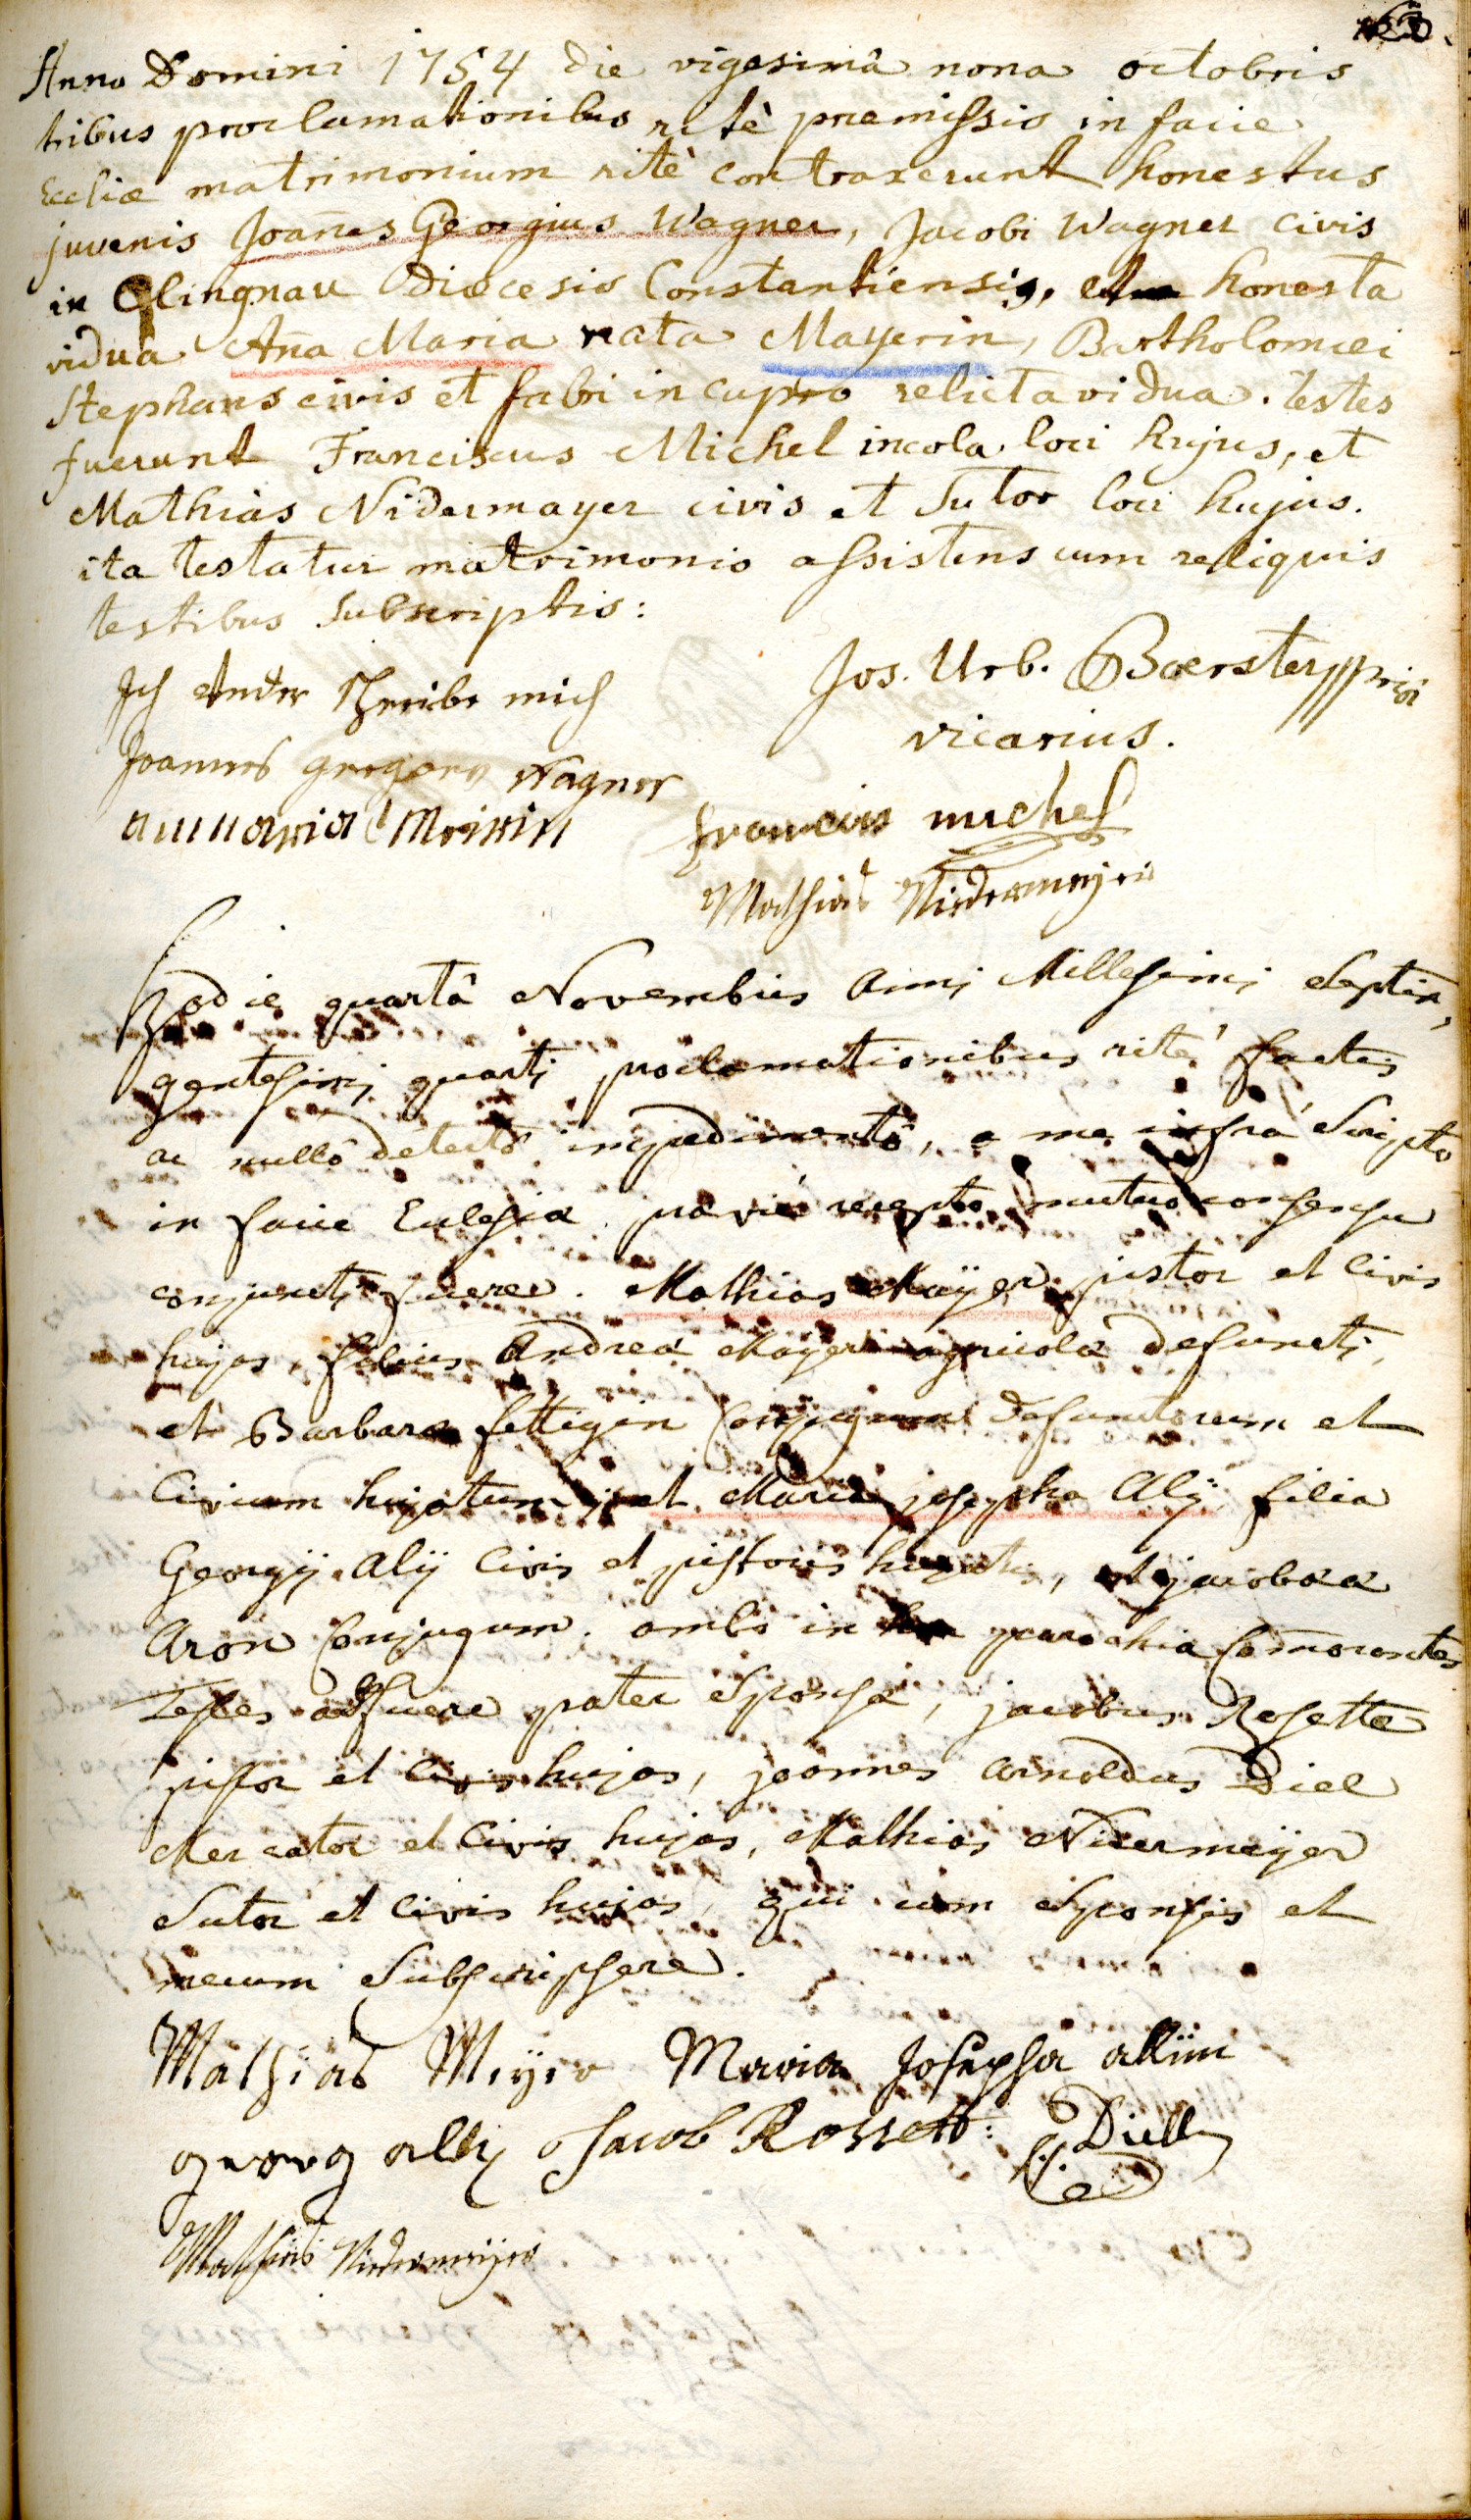 Anno Domini 1754 die vigesimâ nona octobris
tribus proclamationibus ritè praemissis in facie
Eccliæ matrimonium ritè contraxerunt honestus
juvenis Joañes Georgius Wagner, Jacobi Wagner civis
in Clingnau Diœcesis Constantiensis, et honesta
vidua Aña Maria nata Mayerin, Bartholomæi
Stephans civis et fabri in cupro relicta vidua. Testes
fuerunt Franciscus Michel incola loci hujus, et
Mathias Nidermayer civis et Sutor loci hujus.
ita testatur matrimonio assistens cum reliquis
testibus subscriptis:
Jos. Urb. Boerster
vicarius.
Ich schreibe mich
Joannes gregori Wagner
annamaria Meirin
francis michel
Mathias Niedermeyer
Hodie quartâ Novembris anni Millesimi Septin,
gentesimi quarti proclamationibus rité factis
ac nullô detectô impedimentô, a me infrà Scripto
in facie Eclesiæ prævié recepto mutuo consensu
conjuncti fuere. Mathias Mayer pistor et civis
hujas, filius Andreæ Mayer agricolæ defuncti,
et Barbaræ fettigin Conjugum defunctorum et
Civium hujatum, et Maria josepha Alÿ filia
Georgÿ Alÿ Civis et pistoris hujatis, et jacobææ
Aron Conjugum. ambo in parochia Com̃orantes
Testes adfuere pater Sponsæ, jacobus Rosette
pistor et Civis hujas, joannes arnoldus Diel
Mercator et Civis hujas, Mathias Nidermeÿer
Sutor et Civis hujas, qui cum Sponsis et
mecum Subscripsere.
Mathias Meÿer Maria Josepha allÿin
georg allÿ Jacob Rossett: Diell
Mathias Niedermeÿer